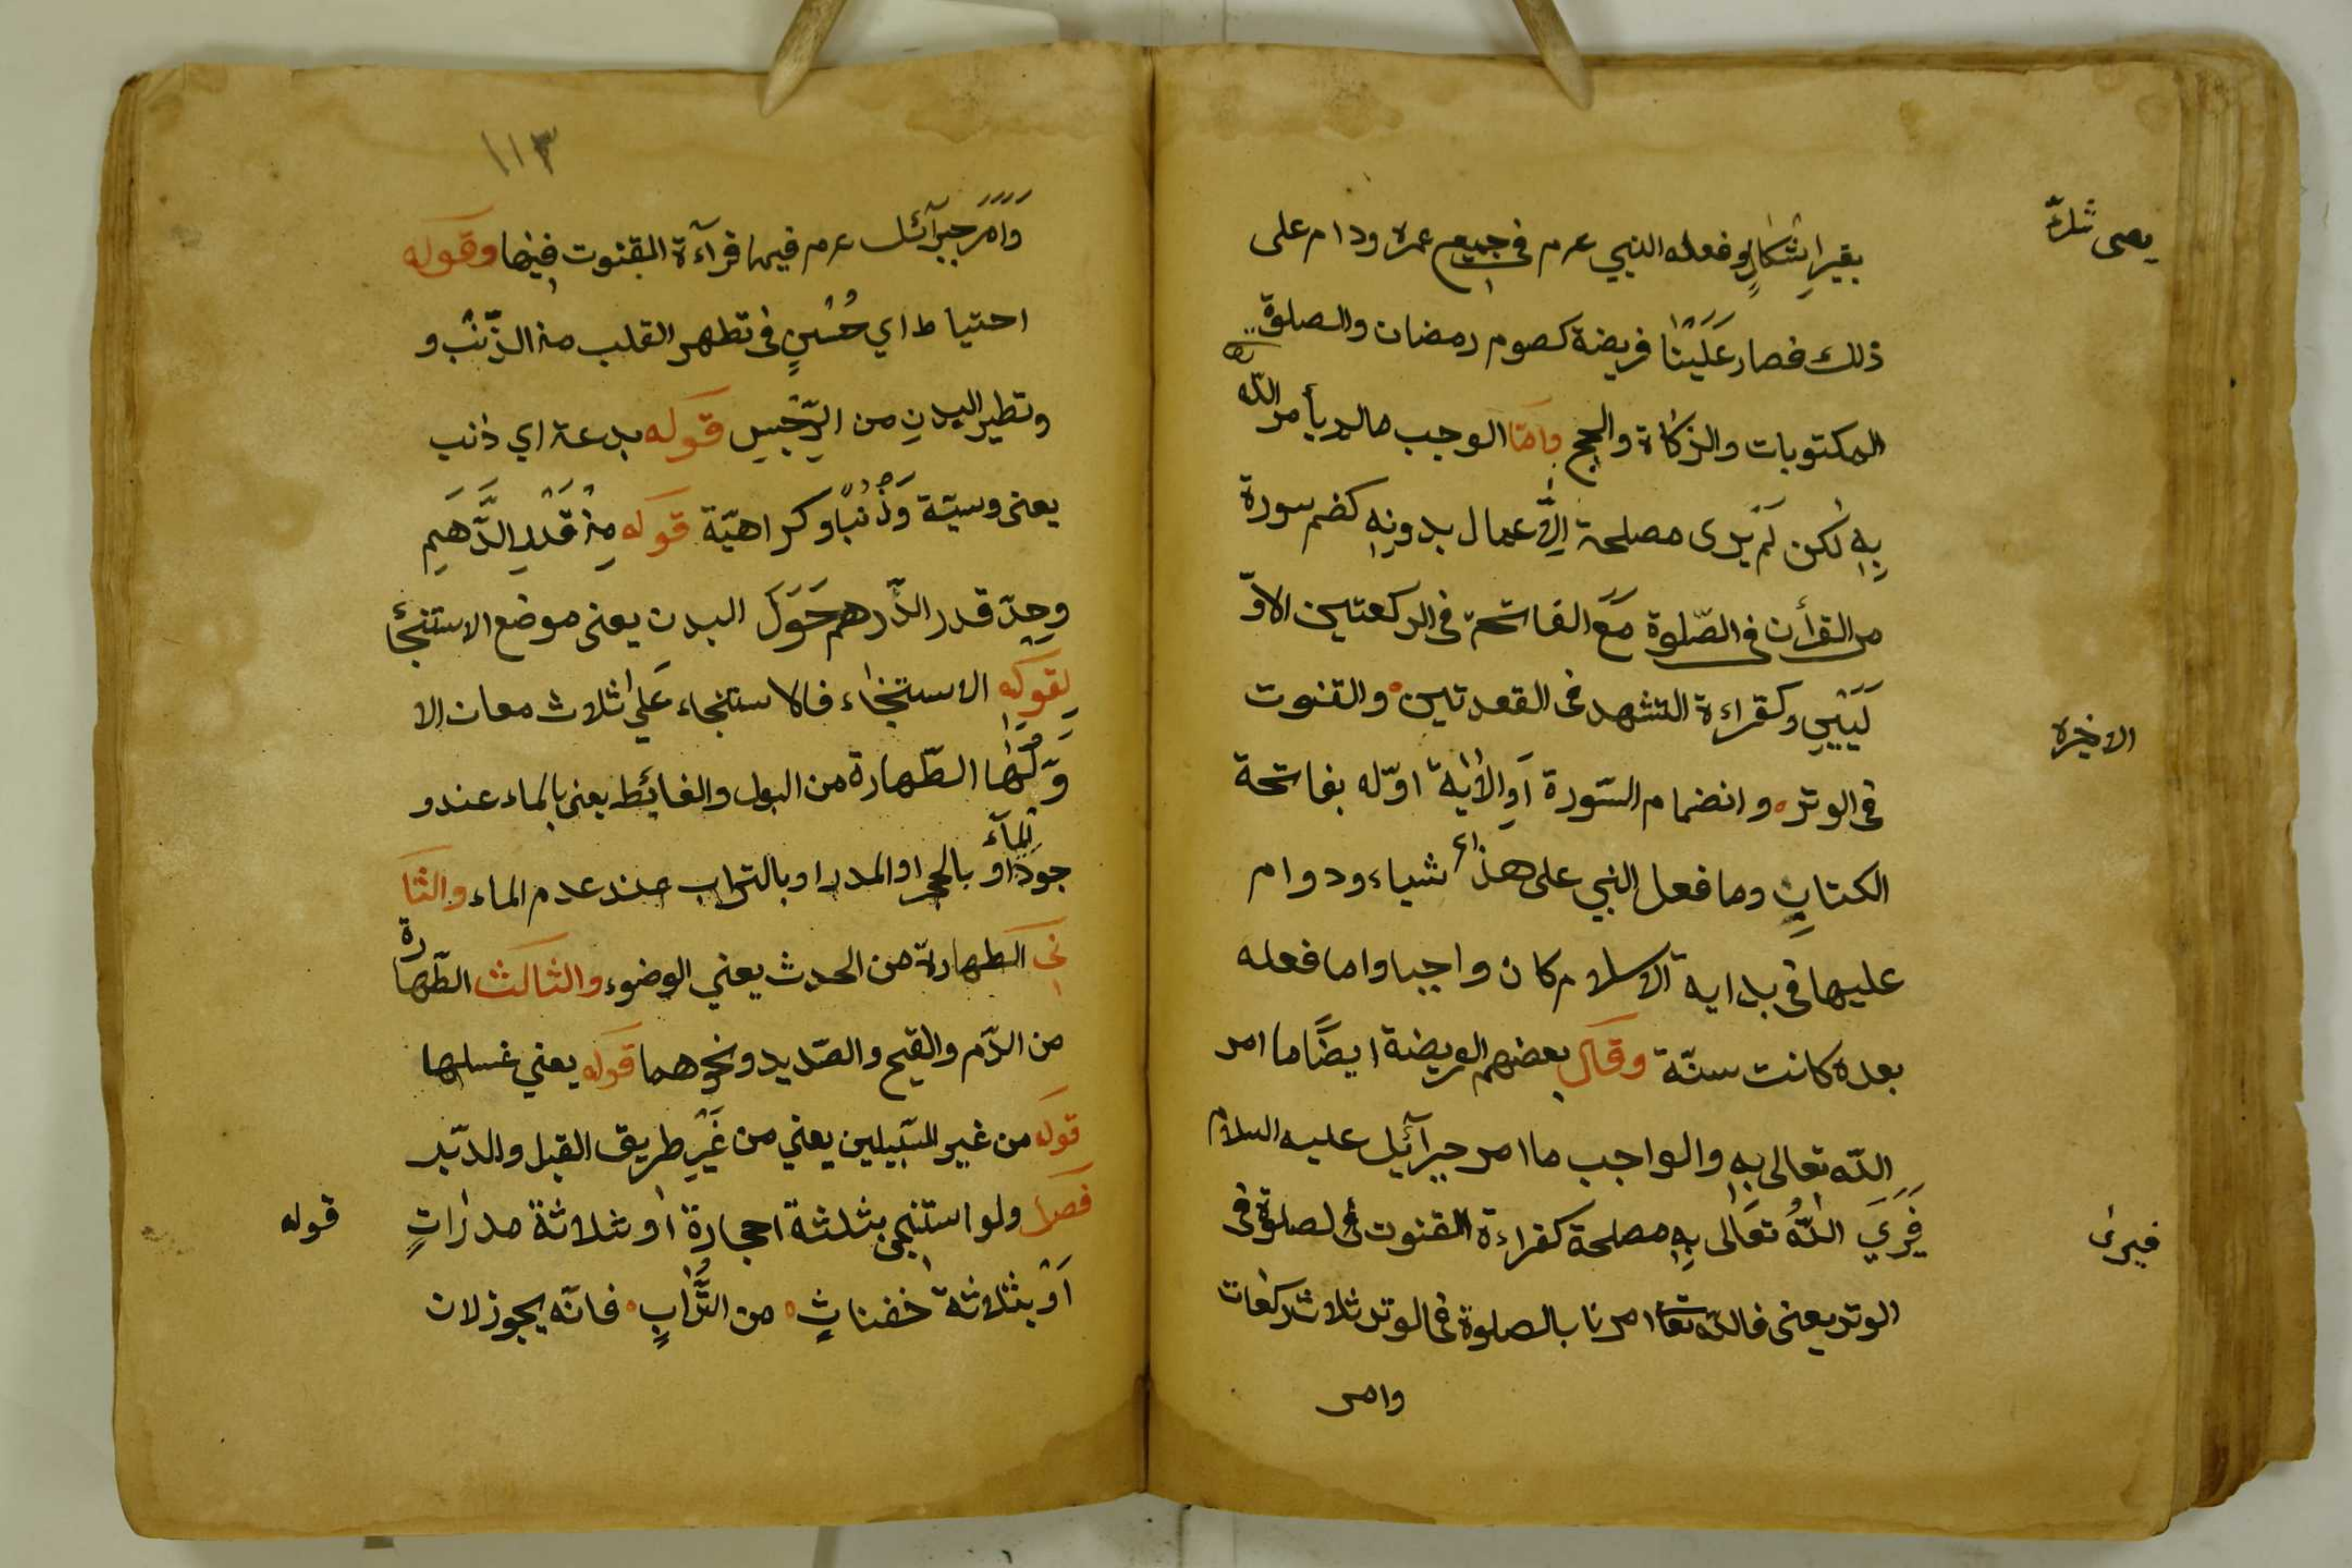 بقير اشكالٍ وفعله النبي عرم في جميع عمره ودام على
ذلك فصار عَلَيْنَا فريضة كصوم رمضان والصلوة
المكتوبات والزكاة والحج وامّا الوجب مالم يأمر اللّه
بِهِ لكن لَم يَرى مصلحة الِاّعمال بدونِهِ كضم سورة
من القرأن في الصّلوة مَعَ الفاتحة في الركعتين الاوّ
لَيَيْنِ وكقراءة التشهد في القعدتين والقنوت
في الوتر وانضمام السّورة اَوِ الأية اوّله بفاتحة
الكتابِ وما فعل النبي على هذاء شياء ودوام
عليها في بداية الاسلام كان واجبا واما فعله
بعده كانت سنّة وقال بعضهم الفريضة ايضًا ما امر
اللّه تعالى بِهِ والواجب ما امر جبرآئيل عليه السلام
فَرَيَ اللّهُ تَعَالى بِهِ مصلحة كقراءة القنوت في لصلوة في
الوتر يعنى فاللّه تعا امرنا بالصلوة في الوتر ثلاث ركعات
وامر
الاخيرة
فيرى
١١٣
وَاَمَرَ جبرآئل عرم فيها قرآءة القنوت فيضا وقوله
احتياط اي حُسْنٍ في تطهر القلب من الذّنب و
وتطير البدنِ من الرّجْسِ قوله بدعة اي ذنب
يعنى وسيّة وَذُنْبًا وكراهيّة قوله مِنْ قَدْرِ الدَّهَمِ
وحِدّ قدر الدّرهم حَوَلَ البدن يعنى موضع الاستنجأ
لِقوله الاستنجاء فالاستنجاء عَلى ثلاث معان الا
وّلُها الطّهارة من البول والغائط يعنى بالماء عند و
جودِ المآء او بالحجر او المدر او بالتراب عند عدم الماء والثا
نى الطهارة من الحدث يعني الوضوء والثالث الطّهارة
من الدّم والقيح والصّديد ونحوهما قوله يعني غسلها
قوله من غير السّبيلين يعني من غَيْرِ طريق القبل والدّبر
فصل ولو استنجى بثلثة احجارة او بثلاثة مدراتٍ
اَوْ بثلاثة خفناتٍ من التُّرابِ فانّه يجوز لان
قوله